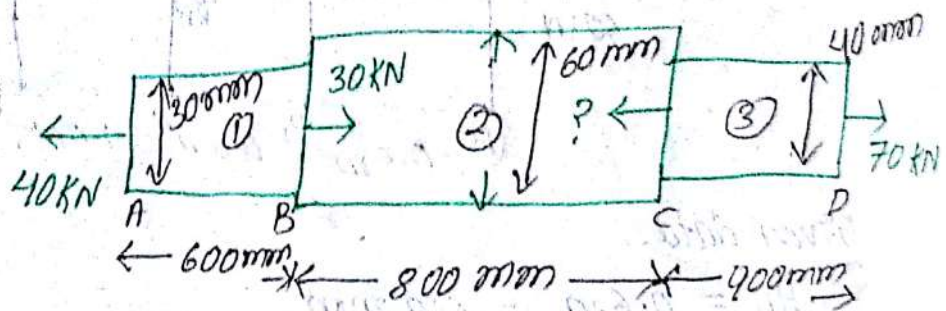 40mm
30KN
60mm
30mm
①
②
?
③
40KN
70KN
A
B
C
D
600mm
800mm
400mm